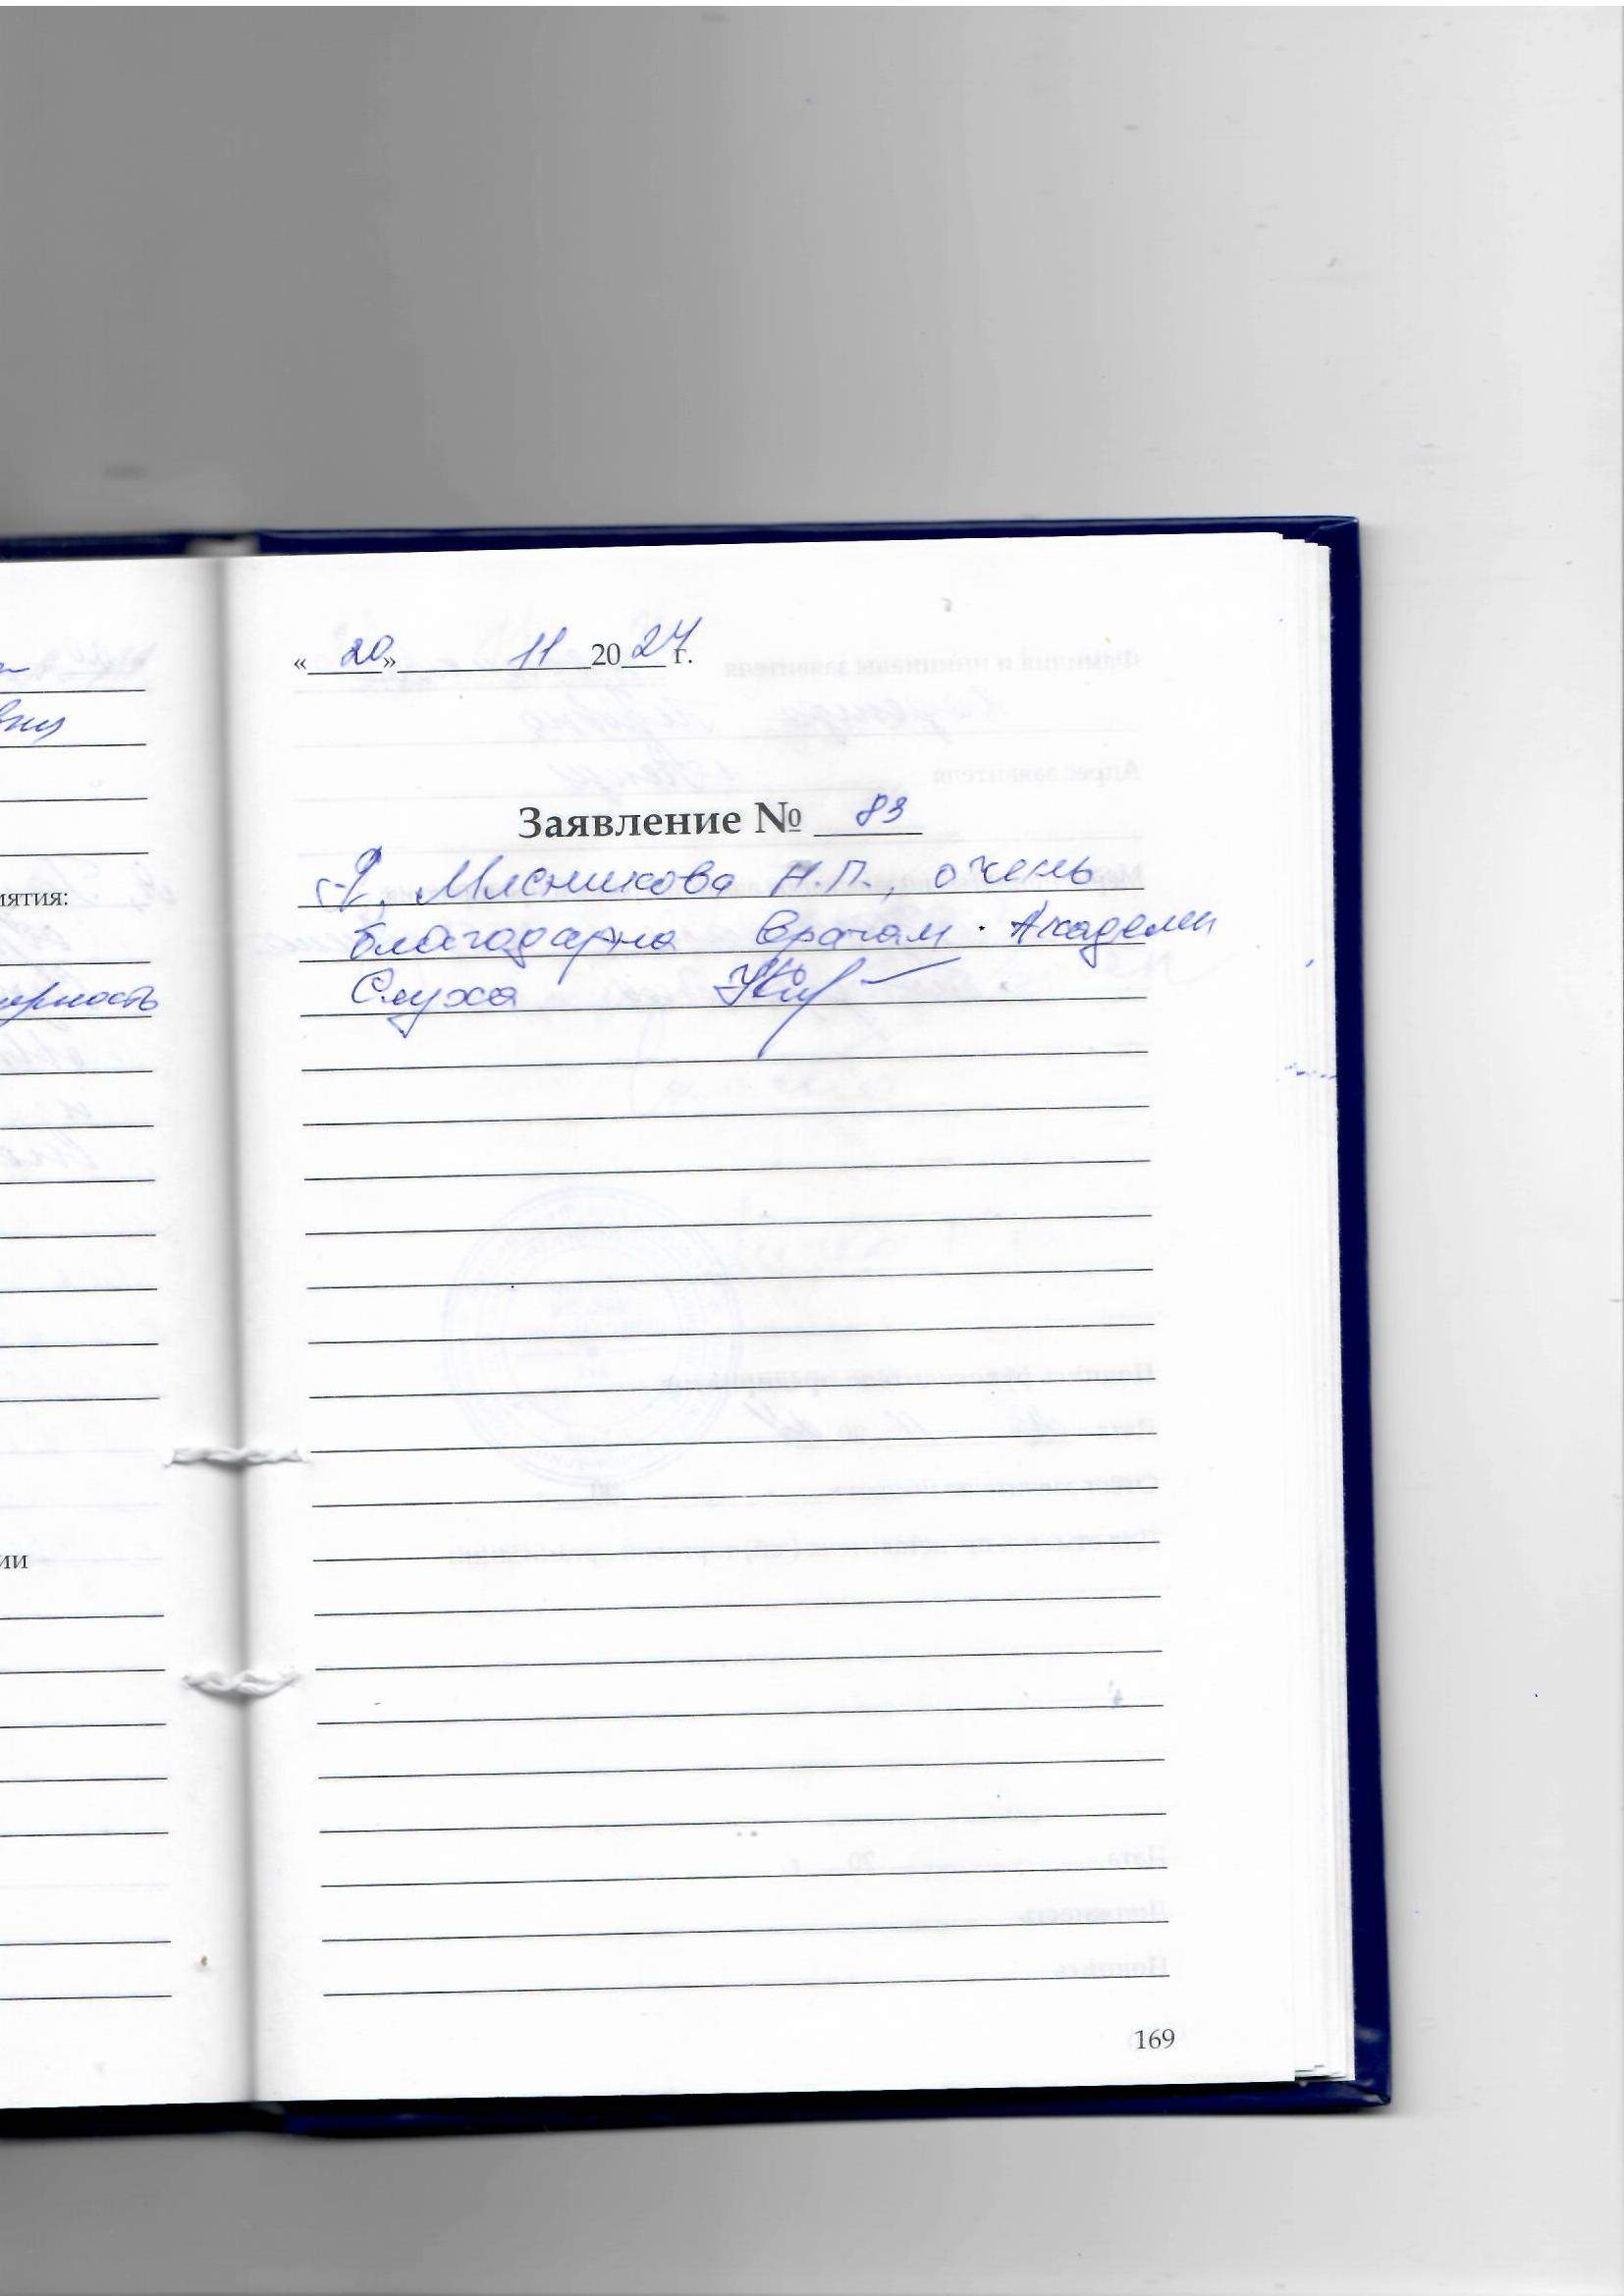 вну
«20» 11 2024 г.
Заявление № 83
Я, Мясникова Н.П., очень
благодарна врачам Академии
Слуха
иятия:
ии
169